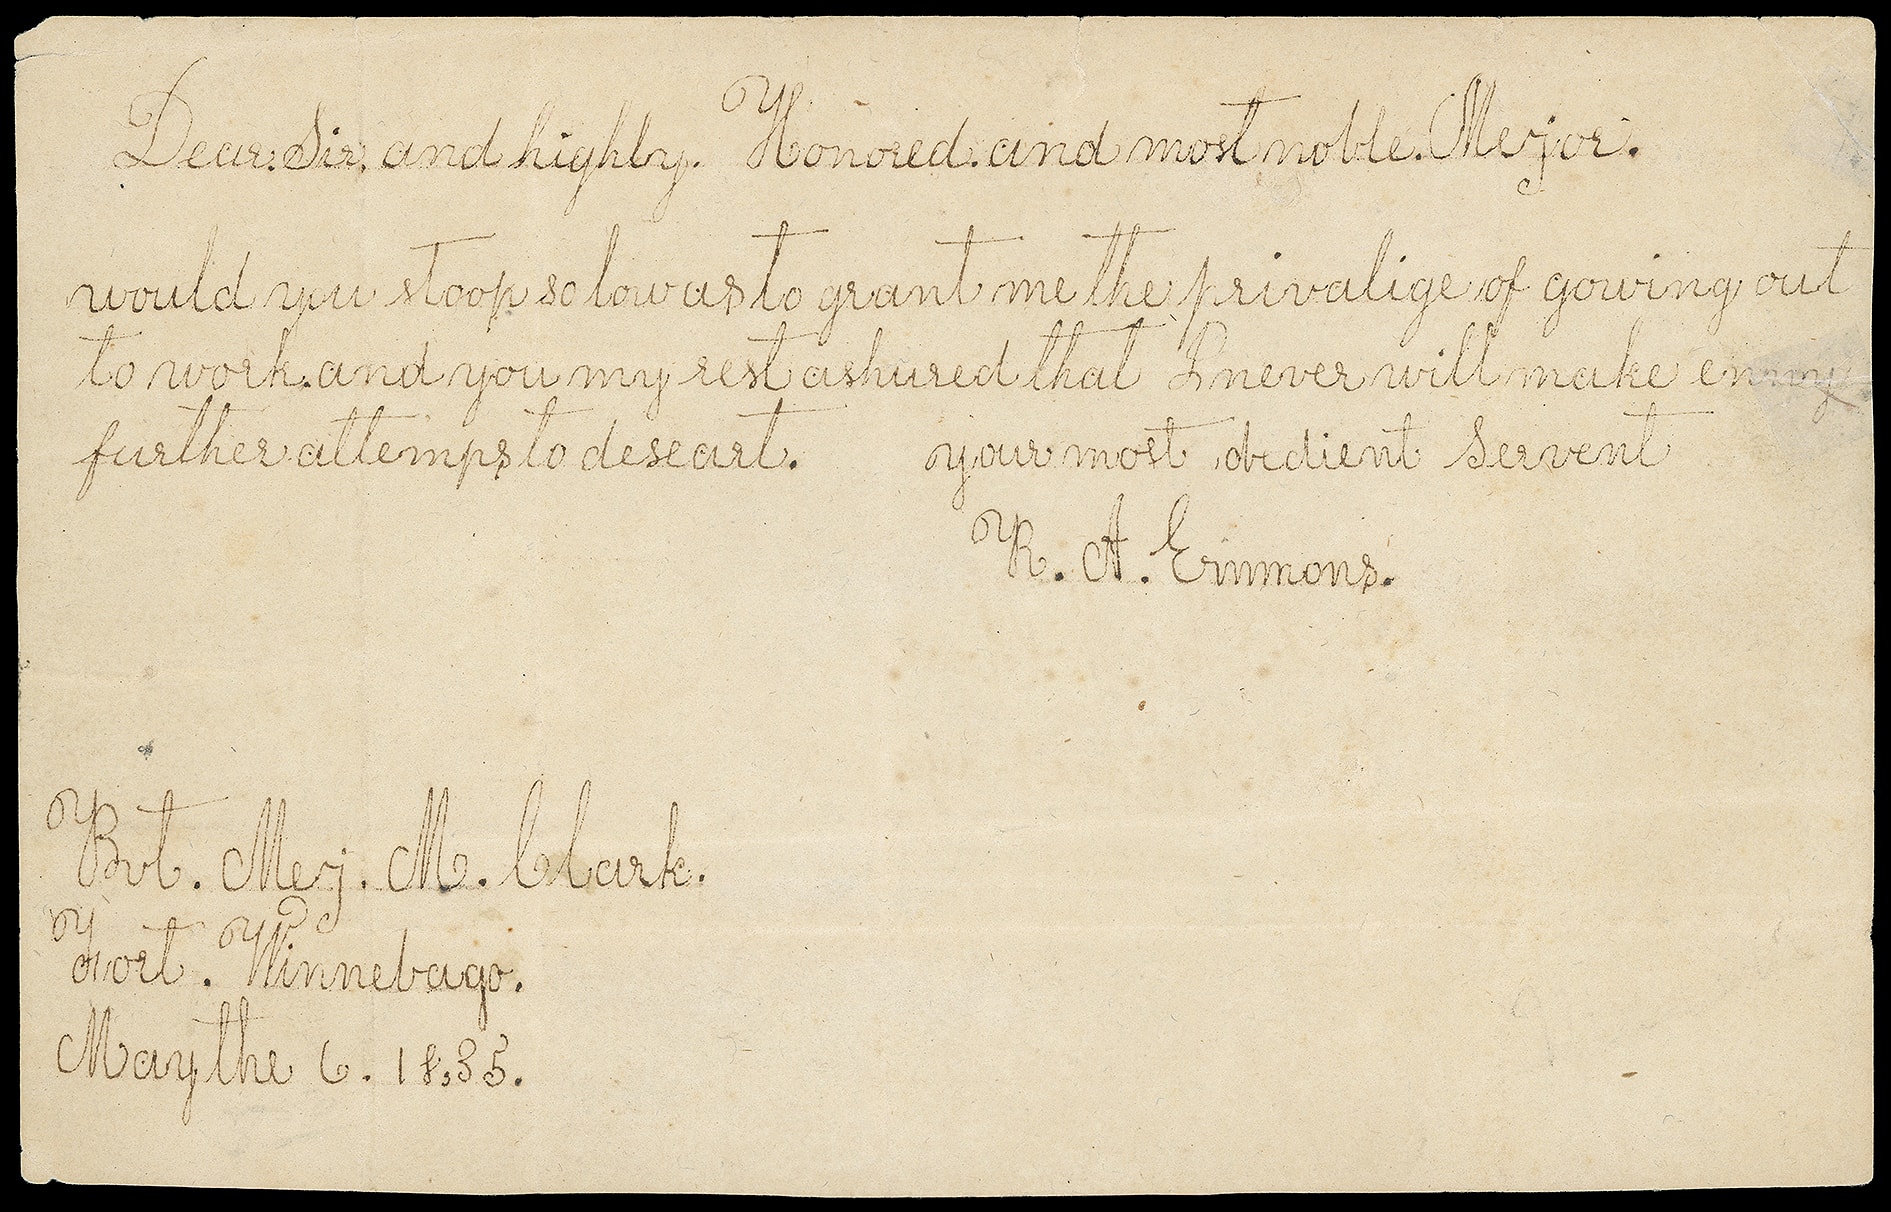 Dear. Sir. and highly. Honored. and most noble. Merjor.
would you stoop so low as to grant me the privalige of gowing out
to work. and you my rest ashured that I never will make enny
further attemps to deseart. your most obedient Servent
R. A. Emmons.
Bvt. Merj. M. Clark.
Fort. Winnebago.
May the 6. 1835.